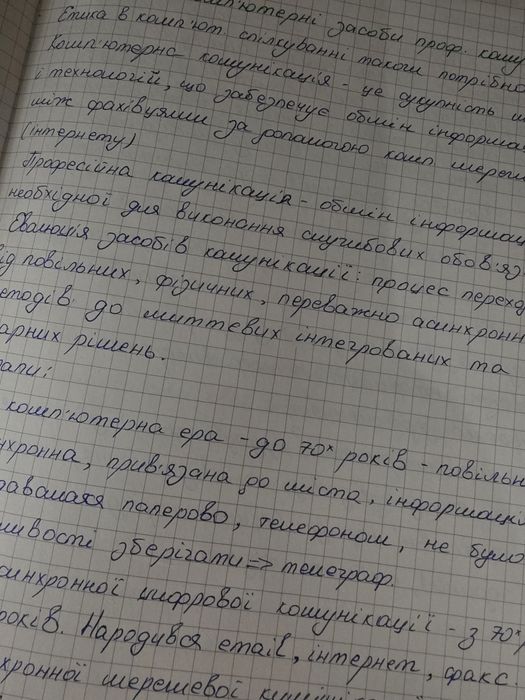 комп'ютерні засоби проф. кому
Етика в комп'ют. спілкуванні також потрібно
Комп'ютерна комунікація - це сукупність
і технологій, що забезпечує обмін інформа
між фахівцями за допомогою комп. мереж
(інтернету)
Професійна комунікація - обмін інформац
необхідної для виконання службових обов'яз
Еволюція засобів комунікації: процес переход
ід повільних, фізичних, переважно асинхронн
етодів до миттєвих інтегрованих та
арних рішень.
апи:
комп'ютерна ера - до 70х років - повільн
нхронна, прив'язана до міста, інформаці
давалася паперово, телефоном, не було
ливості зберігати => телеграф.
синхронної цифрової комунікації - з 70х
років. Народився email, інтернет, факс.
хронної мережевої